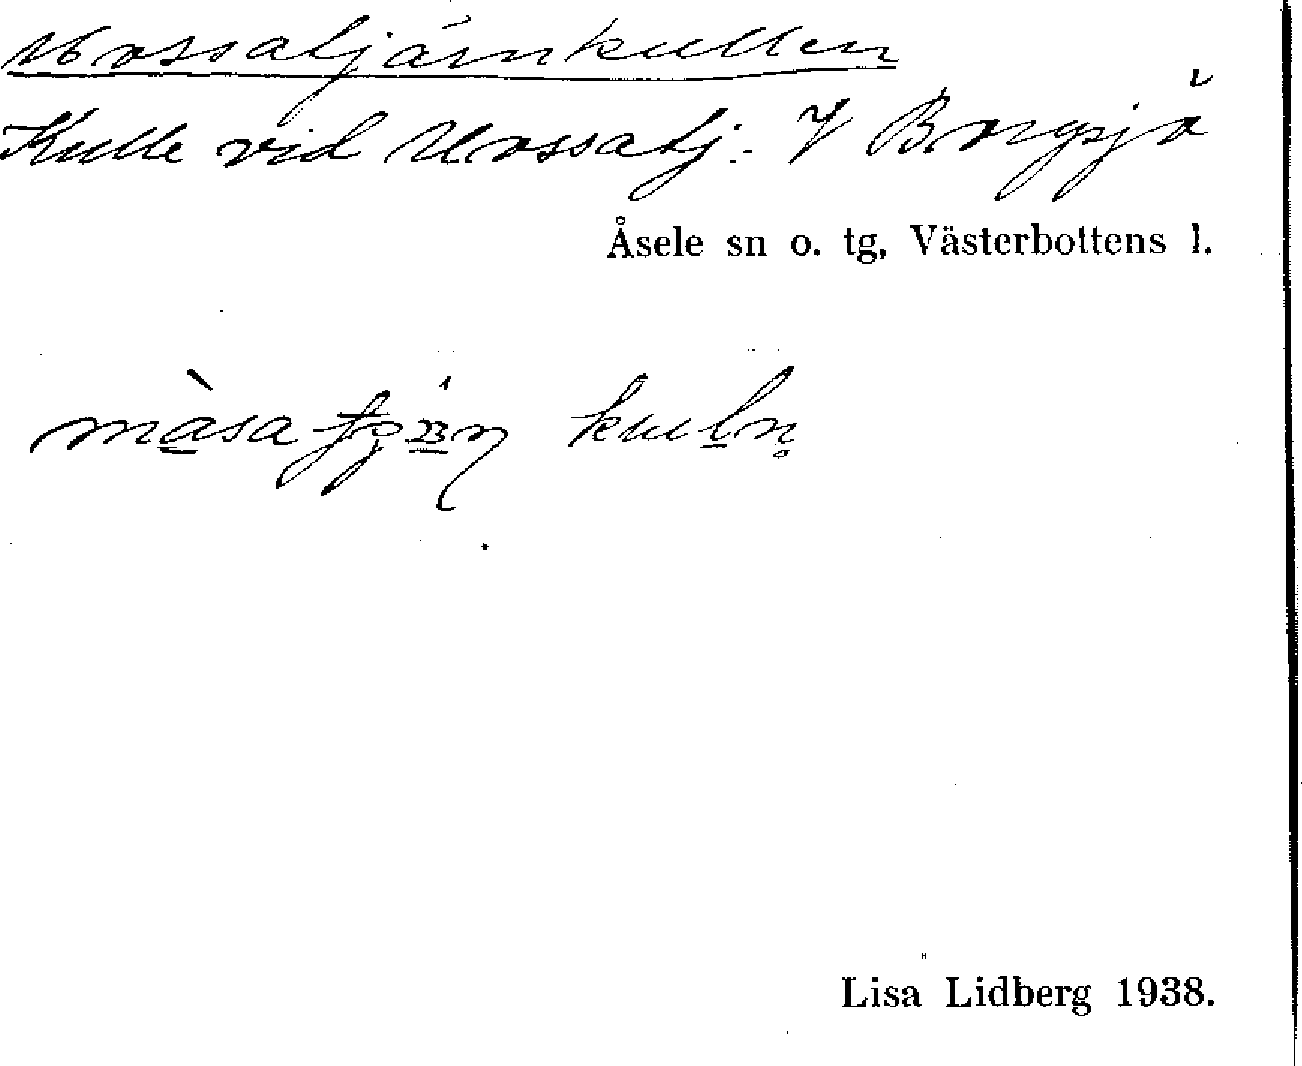 Mossatjärnkullen
Kulle vid Mossatj. V Borgsjö
Åsele sn o. tg, Västerbottens l.
Lisa Lidberg 1938.